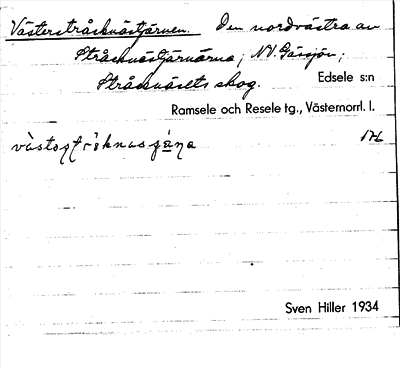 Västerstråcknästjärnen. Den nordvästra av
Stråcknästjärnarna; NV. Gåssjön;
Stråcknäsets skog. Edsele s:n
Ramsele och Resele tg., Västernorrl. l.
Sven Hiller 1934